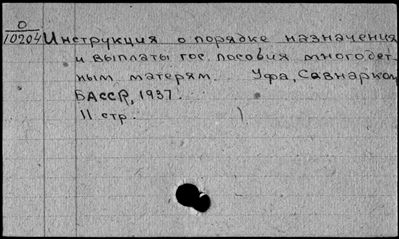 О
10204 Инструкция о порядке назначения
и выплаты гос. пособия многодет-
ным матерям. Уфа, Савнарком
БАССR, 1937.
11 стр.